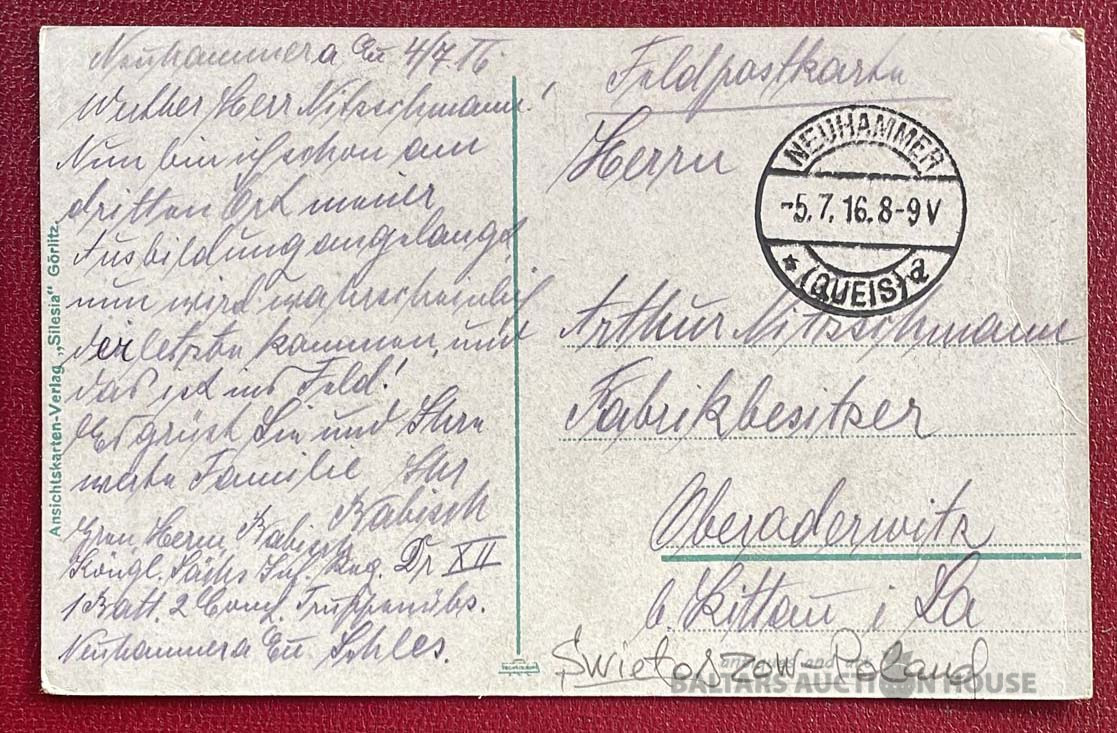 Neuhammer a Qu 4/7 16.
Werther Herr Nitzschmann!
Nun bin ich schon am
dritten Ort meiner
Ausbildung angelangt
nun wird wahrscheinlich
der letzte kommen, und
das ist ins Feld!
Es grüßt Sie und Ihre
werte Familie Ihr
Babisch
Herrn Babisch
Königl. Sächs Inf. Reg. XII
1 Batt. 2 Comp. Truppenübs.
Neuhammer a Qu. Schles.
Ansichtskarten-Verlag „Silesia" Görlitz.
Feldpostkarte
NEUHAMMER
-5.7.16.8-9V
* (QUEIS) a
Herrn
Arthur Nitzschmann
Fabrikbesitzer
Oberoderwitz
b. Zittau i Sa
Swietoszow-Poland
BALTARS AUCTION HOUSE